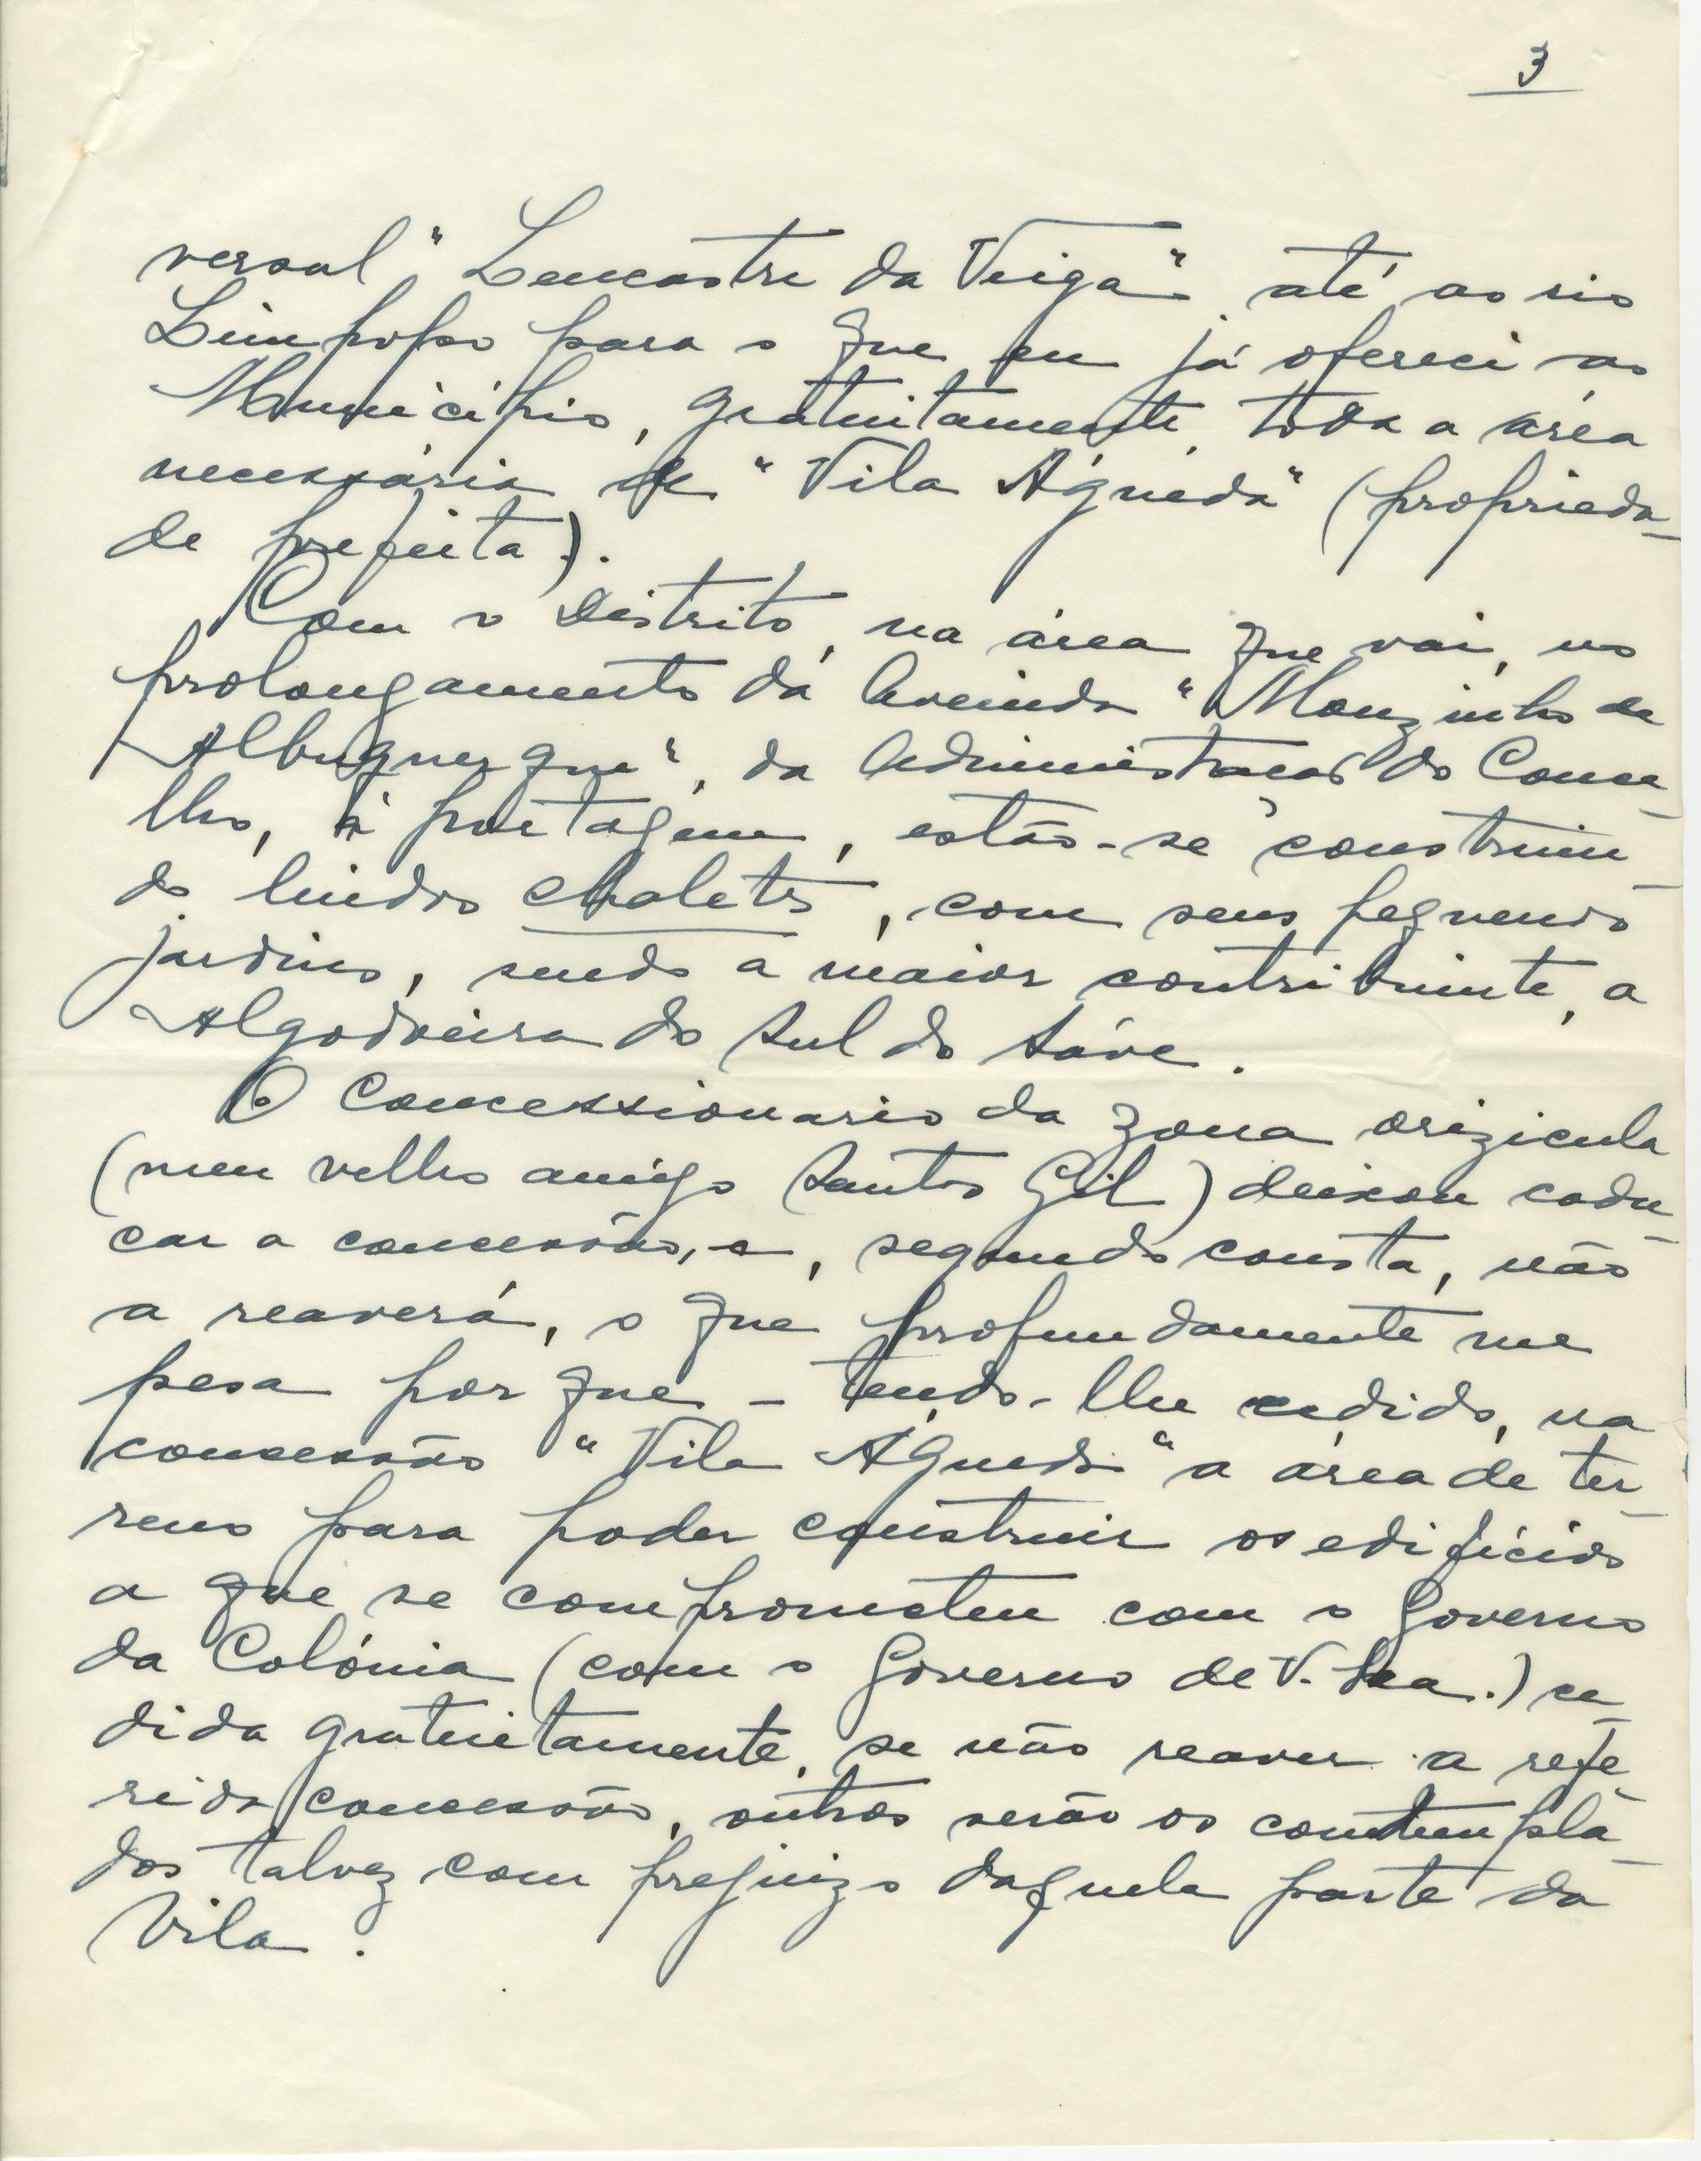 3
versal "Lencastre da Veiga" até ao rio
Limpopo para o que eu já ofereci ao
Município, gratuitamente, toda a área
necessária de "Vila Águeda" (proprieda-
de perfeita).
Com o Distrito, na área que vai, no
prolongamento da Avenida "Mouzinho de
Albuquerque", da Administração do Conce-
lho, à portagem, estão-se construin-
do lindos chalets, com seus pequenos
jardins, sendo a maior contribuinte, a
Algodoeira do Sul do Save.
O Concessionario da zona orizicula
(meu velho amigo Santos Gil) deixou cadu-
car a concessão, e, segundo consta, não
a reaverá, o que profundamente me
pesa por que - tendo-lhe cedido, na
concessão "Vila Águeda" a área de ter-
reno para poder construir os edifícios
a que se comprometeu com o Governo
da Colónia (com o Governo de V. Exa.) ce-
dida gratuitamente, se não reaver a refe-
rida concessão, outros serão os contempla-
dos talvez com prejuizo daquela parte da
Vila.